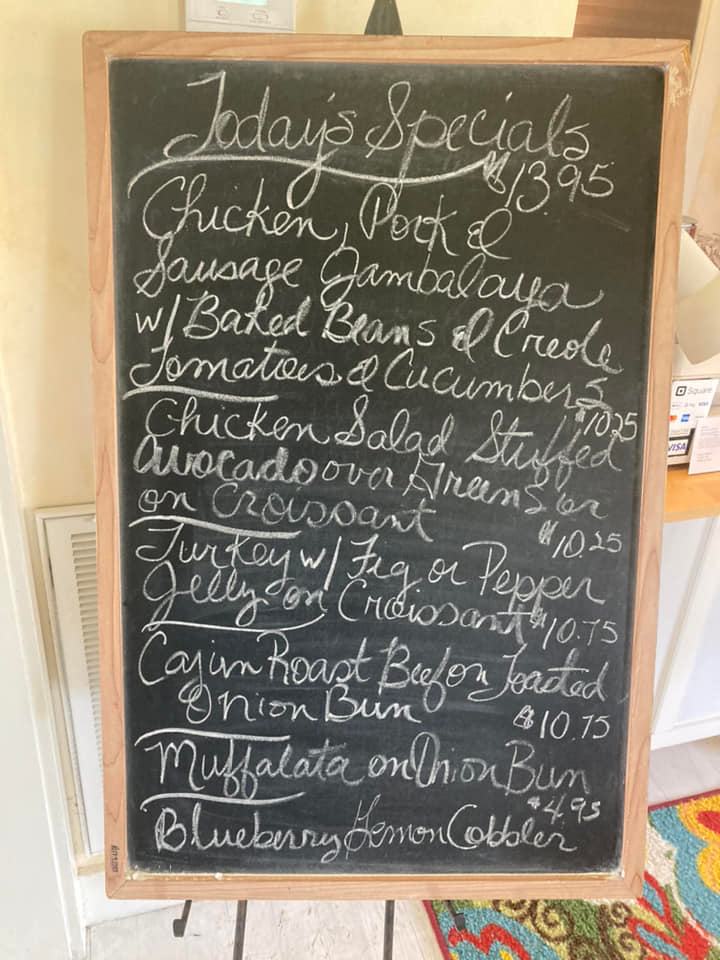 Today's Specials
$13.95
Chicken, Pork &
Sausage Jambalaya
w/ Baked Beans & Creole
Tomatoes & Cucumbers
$10.25
Chicken Salad Stuffed
avocado over Greens or
on Croissant
$10.25
Turkey w/ Fig or Pepper
Jelly on Croissant
$10.75
Cajun Roast Beef on Toasted
Onion Bun
$10.75
Muffalata on Onion Bun
$4.95
Blueberry Lemon Cobbler
Square
VISA
VISA